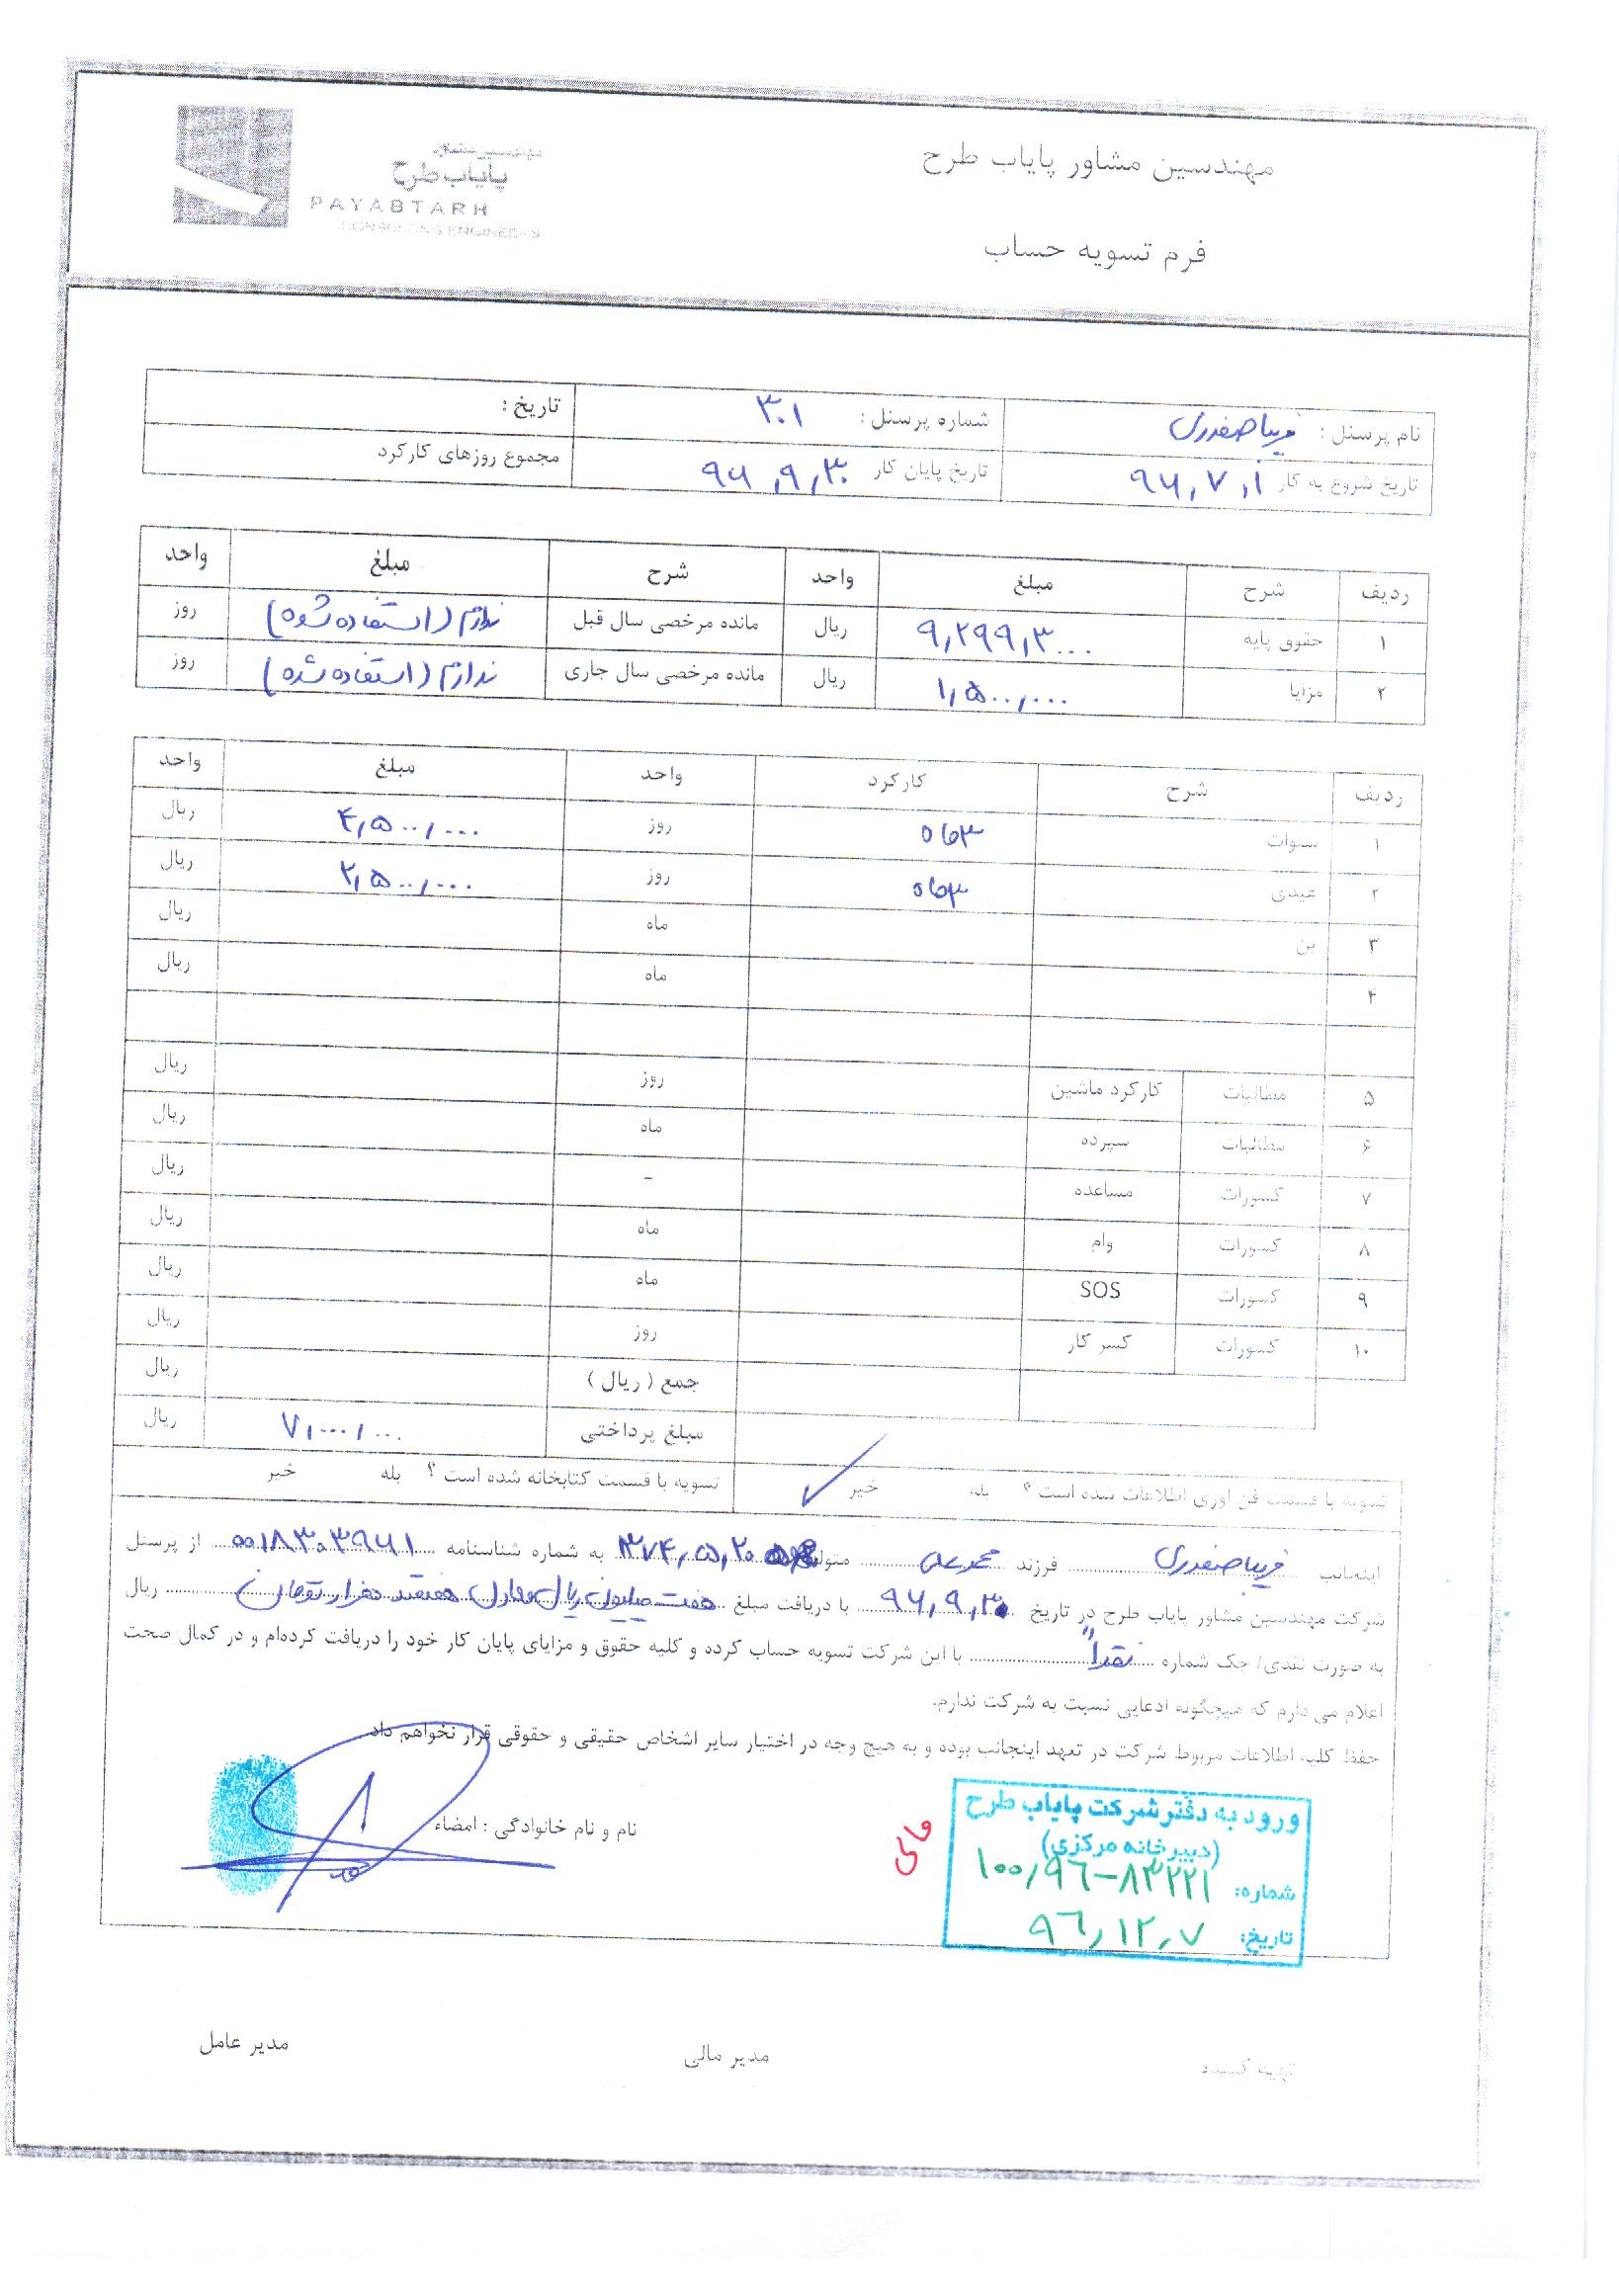 مهندسین مشاور پایاب طرح
مهندسین مشاور
پایاب طرح
PAYABTARH
CONSULTING ENGINEERS
فرم تسویه حساب
نام پرسنل : فریبا صفدری شماره پرسنل : ۳۰۱ تاریخ :
تاریخ شروع به کار ۹۶,۷,۱ تاریخ پایان کار ۹۶,۹,۳۰ مجموع روزهای کارکرد
ردیف شرح مبلغ واحد شرح مبلغ واحد
۱ حقوق پایه ۹,۲۹۹,۳۰۰۰ ریال مانده مرخصی سال قبل ندارم (استفاده شده) روز
۲ مزایا ۱,۵۰۰,۰۰۰ ریال مانده مرخصی سال جاری ندارم (استفاده شده) روز
ردیف شرح کارکرد واحد مبلغ واحد
۱ سنوات ۳ماه روز ۴,۵۰۰,۰۰۰ ریال
۲ عیدی ۳ماه روز ۲,۵۰۰,۰۰۰ ریال
۳ بن ماه ریال
۴ ماه ریال
۵ مطالبات کارکرد ماشین روز ریال
۶ مطالبات سپرده ماه ریال
۷ کسورات مساعده - ریال
۸ کسورات وام ماه ریال
۹ کسورات SOS ماه ریال
۱۰ کسورات کسر کار روز ریال
جمع ( ریال ) ریال
مبلغ پرداختی ۷,۰۰۰,۰۰۰ ریال
تسویه با قسمت فن اوری اطلاعات شده است ؟ بله خیر تسویه با قسمت کتابخانه شده است ؟ بله خیر
اینجانب فریبا صفدری فرزند محمدعلی متولد ۱۳۷۴,۵,۲۰ به شماره شناسنامه ۰۰۱۸۳۰۳۹۶۱ از پرسنل
شرکت مهندسین مشاور پایاب طرح در تاریخ ۹۶,۹,۳۰ با دریافت مبلغ هفت میلیون ریال معادل هفتصد هزار تومان ریال
به صورت نقدی/ چک شماره نقداً با این شرکت تسویه حساب کرده و کلیه حقوق و مزایای پایان کار خود را دریافت کرده‌ام و در کمال صحت
اعلام می دارم که هیچگونه ادعایی نسبت به شرکت ندارم.
حفظ کلیه اطلاعات مربوط شرکت در تعهد اینجانب بوده و به هیچ وجه در اختیار سایر اشخاص حقیقی و حقوقی قرار نخواهم داد
نام و نام خانوادگی : امضاء
مالی
ورود به دفتر شرکت پایاب طرح
(دبیرخانه مرکزی)
شماره: ۱۰۰,۹۶-۸۳۲۲۱
تاریخ: ۹۶,۱۲,۷
تهیه کننده مدیر مالی مدیر عامل